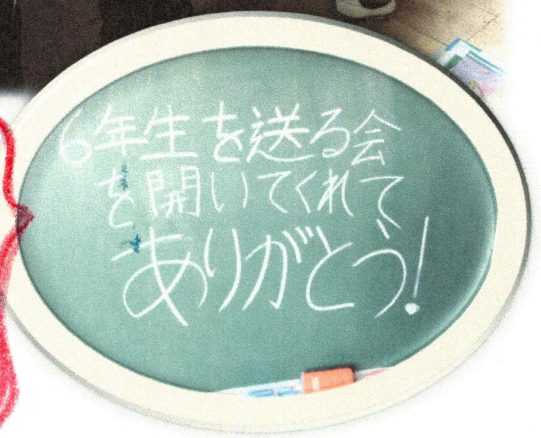 6年生を送る会
を開いてくれて
ありがとう!